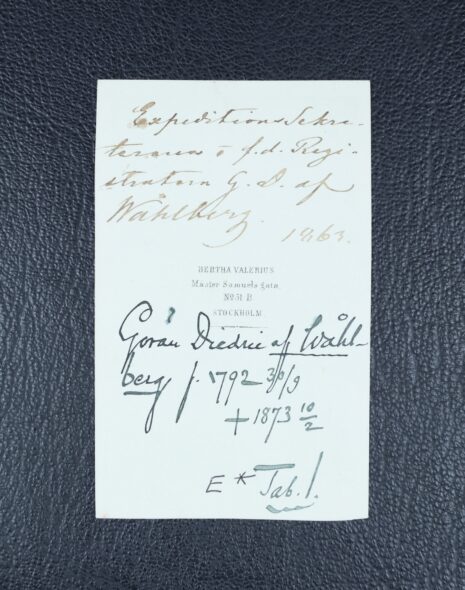 Expeditions Sekre-
teraren o f.d. Regi-
stratorn G. D. af
Wåhlberg.
1863.
BERTHA VALERIUS
Master Samuels gata,
No 51 B
STOCKHOLM.
Göran Diedric af Wåhl-
berg f. 1792 30/9
+ 1873 10/2
E* Tab. 1.